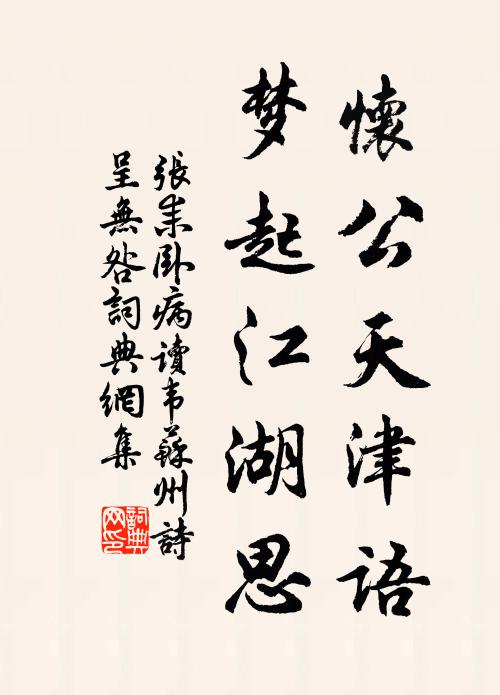 懷公天津语
梦起江湖思
張耒卧病讀韦蘇州詩
呈無咎詞典網集
詞典网印